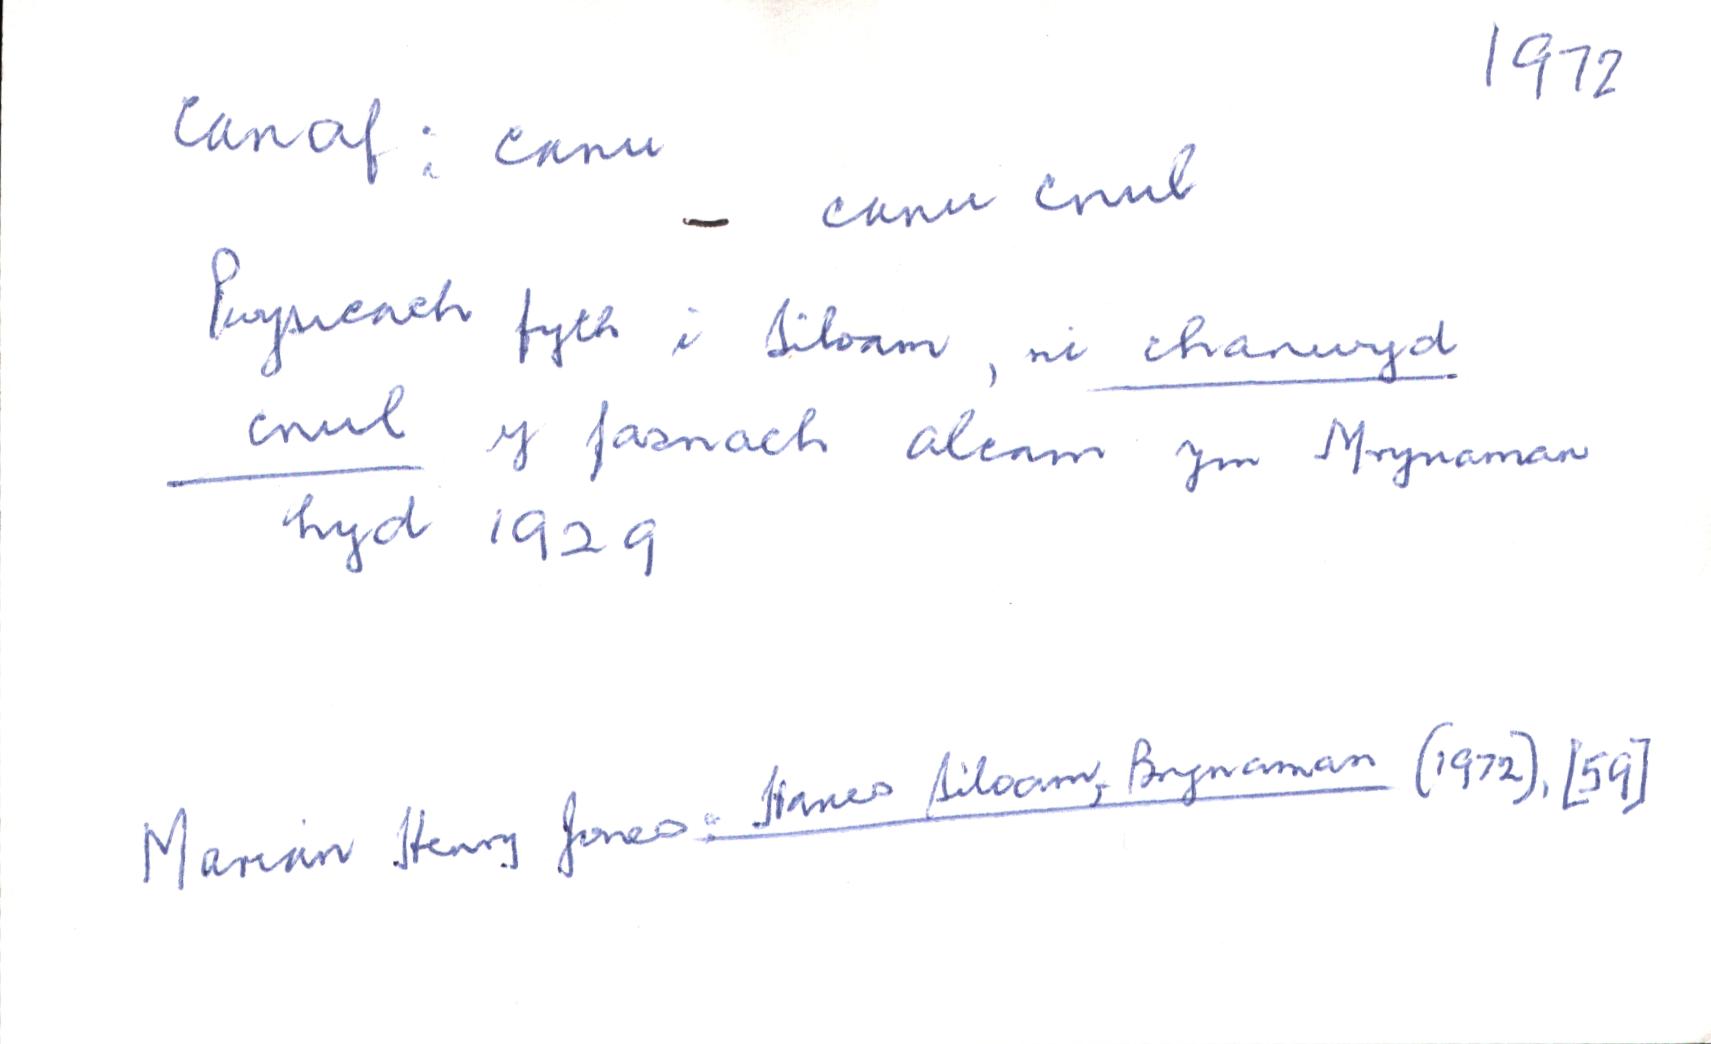 1972
canaf : canu
– canu cnul
Pwysicach fyth i Siloam, ni chanwyd
cnul y fasnach alcam ym Mrynaman
hyd 1929
Marian Henry Jones : Hanes Siloam, Brynaman (1972), [59]